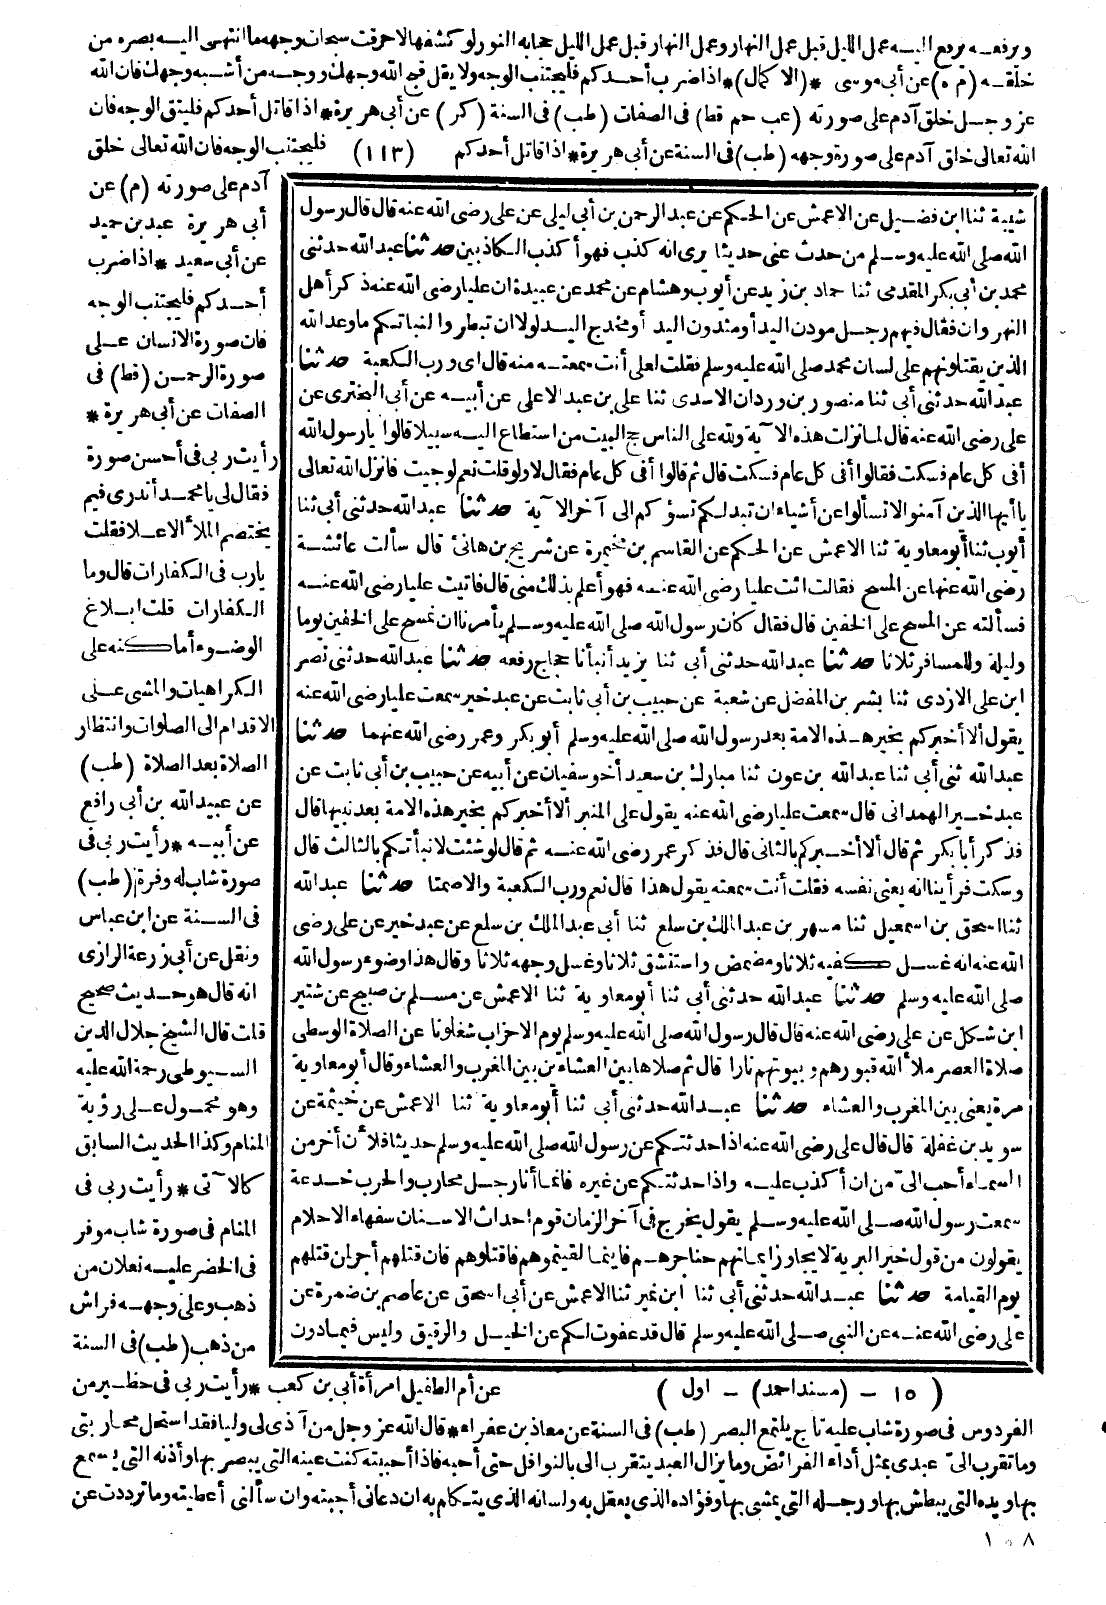 ويرفعـه يرفع اليـه عمل الليل قبل عمل النهار وعمل النهار قبل عمل الليل حجابه النور لو كشفها لاحرقت سبحات وجهه ما انتهى اليـه بصره من
خلقـه (م ه) عن أبي موسى * (الا كمال) * اذا ضرب أحـدكم فليجتنب الوجه ولا يقل قبح الله وجهك ووجـه من أشبـه وجهك فان الله
عز وجـل خلق آدم على صورته (عب حم قط) فى الصفات (طب) فى السنة (كر) عن أبي هريرة * اذا قاتل أحدكم فليتق الوجه فان
الله تعالى خلق آدم على صورة وجهه (طب) فى السنة عن أبي هريرة * اذا قاتل أحدكم (١١٣) فليجتنب الوجه فان الله تعالى خلق
آدم على صورته (م) عن
أبي هريرة عبد بن حميد
عن أبي سعيد * اذا ضرب
أحـدكم فليجتنب الوجه
فان صورة الانسان عـلى
صورة الرحمـن (قط) فى
الصفات عن أبي هريرة *
رأيت ربي فى أحسن صورة
فقال لي يا محمـد أتدري فيم
يختصم الملأ الاعـلا فقلت
يارب فى الكفارات قال وما
الكفارات قلت ابـلاغ
الوضـوء أماكنه على
الكراهيات والمشى عـلى
الاقدام الى الصلوات وانتظار
الصلاة بعد الصلاة (طب)
عن عبيد الله بن أبي رافع
عن أبيـه * رأيت ربي فى
صورة شاب له وفرة (طب)
فى السـنة عن ابن عباس
ونقل عن أبي زرعة الرازى
انه قال هو حديث صحيح
قلت قال الشيخ جلال الدين
السـيوطى رحمة الله عليه
وهو محمـول عـلى رؤية
المنام وكذا الحديث السابق
كالآتى * رأيت ربي فى
المنام فى صورة شاب موفر
فى الخضر عليـه نعلان من
ذهب وعلى وجهـه فراش
من ذهب (طب) فى السنة
شيبة ثنا ابن فضيل عن الاعمش عن الحكم عن عبد الرحمن بن أبي ليلى عن على رضى الله عنه قال قال رسول
الله صلى الله عليه وسـلم من حدث عنى حديثا يرى انه كذب فهو أكذب الكاذبين حدثنا عبد الله حدثنى
محمد بن أبي بكر المقدمى ثنا حماد بن زيد عن أيوب وهشام عن محمد عن عبيدة ان عليا رضى الله عنه ذكر أهل
النهروان فقال فيهم رجـل مودن اليد أو مثدون اليد أو مخدج اليـد لولا ان تبطروا لنبأتكم ما وعد الله
الذين يقتلونهم على لسان محمد صلى الله عليه وسلم فقلت لعلى أنت سمعتـه منه قال اى ورب الكعبة حدثنا
عبد الله حدثنى أبي ثنا منصور بن وردان الاسدى ثنا على بن عبد الاعلى عن أبيـه عن أبي البخترى عن
على رضى الله عنه قال لما نزلت هذه الآية ولله على الناس حج البيت من استطاع اليـه سبيلا قالوا يا رسول الله
أفى كل عام فسكت فقالوا أفى كل عام فسكت قال ثم قالوا أفى كل عام فقال لا ولو قلت نعم لوجبت فانزل الله تعالى
يا أيها الذين آمنوا لا تسألوا عن أشياء ان تبد لكم تسؤكم الى آخر الآية حدثنا عبد الله حدثنى أبي ثنا
أيوب ثنا أبو معاوية ثنا الاعمش عن الحكم عن القاسم بن مخيمرة عن شريح بن هانئ قال سألت عائشـة
رضى الله عنها عن المسح فقالت ائت عليا رضى الله عنـه فهو أعلم بذلك منى قال فاتيت عليا رضى الله عنـه
فسألته عن المسح على الخفين قال فقال كان رسول الله صلى الله عليه وسـلم يأمرنا ان نمسح على الخفين يوما
وليلة وللمسافر ثلاثا حدثنا عبد الله حدثنى أبي ثنا يزيد أنبأنا حجاج رفعه حدثنا عبد الله حدثنى نصر
ابن على الازدى ثنا بشر بن المفضل عن شعبة عن حبيب بن أبي ثابت عن عبد خير سمعت عليا رضى الله عنه
يقول ألا أخبركم بخير هـذه الامة بعد رسول الله صلى الله عليه وسلم أبو بكر وعمر رضى الله عنهما حدثنا
عبد الله ثنى أبي ثنا عبد الله بن عون ثنا مبارك بن سعيد أخو سفيان عن أبيه عن حبيب بن أبي ثابت عن
عبد خـير الهمدانى قال سمعت عليا رضى الله عنه يقول على المنبر ألا أخبركم بخير هذه الامة بعد نبيها قال
فذكر أبا بكر ثم قال ألا أخـبركم بالثانى قال فذكر عمر رضى الله عنـه ثم قال لو شئت لانبأتكم بالثالث قال
وسكت فرأينا انه يعنى نفسه فقلت أنت سمعته يقول هذا قال نعم ورب الكعبة والا صمتا حدثنا عبد الله
ثنا اسحق بن اسمعيل ثنا مسهر بن عبد الملك بن سلع ثنا أبي عبد الملك بن سلع عن عبد خير عن على رضى
الله عنه انه غسـل كفيه ثلاثا ومضمض واستنشق ثلاثا وغسل وجهه ثلاثا وقال هذا وضوء رسول الله
صلى الله عليه وسلم حدثنا عبد الله حدثنى أبي ثنا أبو معاوية ثنا الاعمش عن مسـلم بن صبيح عن شتير
ابن شكل عن على رضى الله عنه قال قال رسول الله صلى الله عليه وسلم يوم الاحزاب شغلونا عن الصلاة الوسطى
صلاة العصر ملأ الله قبورهم وبيوتهم نارا قال ثم صلاها بين العشاءين بين المغرب والعشاء وقال أبو معاوية
مرة يعنى بين المغرب والعشاء حدثنا عبـد الله حدثنى أبي ثنا أبو معاوية ثنا الاعمش عن خيثمة عن
سويد بن غفلة قال قال على رضى الله عنه اذا حدثتكم عن رسول الله صلى الله عليه وسلم حديثا فلأن أخر من
السماء أحب الىّ من ان أكذب عليـه واذا حدثتكم عن غيره فانما أنا رجـل محارب والحرب خـدعة
سمعت رسول الله صـلى الله عليه وسـلم يقول يخرج فى آخر الزمان قوم احداث الاسـنان سفهاء الاحلام
يقولون من قول خير البرية لا يجاوز ايمانهم حناجرهـم فاينما لقيتموهم فاقتلوهم فان قتلهم أجر لمن قتلهم
يوم القيامة حدثنا عبـد الله حدثنى أبي ثنا ابن نمير ثنا الاعمش عن أبي اسحق عن عاصم بن ضمرة عن
على رضى الله عنـه عن النبي صـلى الله عليه وسلم قال قد عفوت لكم عن الخيـل والرقيق وليس فيما دون
(١٥ - (مسند احمد) - اول)
عن أم الطفيل امرأة أبي بن كعب * رأيت ربي فى حظـير من
الفردوس فى صورة شاب عليه تاج يلتمع البصر (طب) فى السنة عن معاذ بن عفراء * قال الله عز وجل من آذى لى وليا فقد استحل محاربتى
وما تقرب الىّ عبدى بمثل أداء الفرائض وما يزال العبد يتقرب الى بالنوافل حتى أحبه فاذا أحببته كنت عينه التى يبصر بها وأذنه التى يسمع
بها ويده التى يبطش بها ورجـله التى يمشى بها وفؤاده الذى يعقل به ولسانه الذى يتكلم به ان دعانى أجبته وان سألنى أعطيته وما ترددت عن
١٠٨